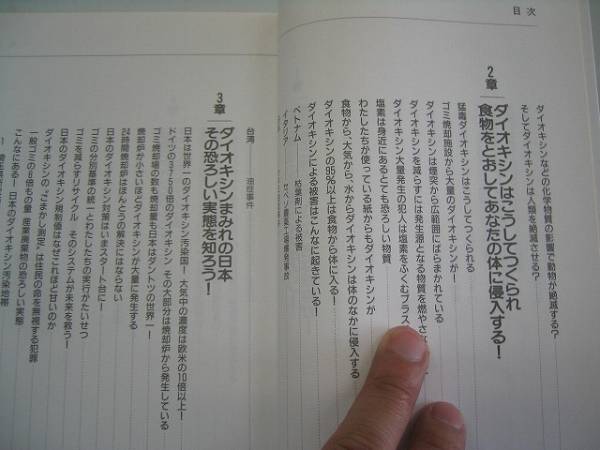 目次
ダイオキシンなどの化学物質の影響で動物が絶滅する？
そしてダイオキシンは人類を絶滅させる？
2章
ダイオキシンはこうしてつくられ
食物をとおしてあなたの体に侵入する！
猛毒ダイオキシンはこうしてつくられる
ゴミ焼却施設から大量のダイオキシンが！
ダイオキシンは煙突から広範囲にばらまかれている
ダイオキシンを減らすには発生源となる物質を燃やさな
ダイオキシン大量発生の犯人は塩素をふくむプラス
塩素は身近にあるとても恐ろしい物質
わたしたちが使っている紙からもダイオキシンが
ダイオキシンの95％以上は食物から体に入る！
食物から、大気から、水からダイオキシンは体のなかに侵入する
ダイオキシンによる被害はこんなに起きている！
ベトナム 枯葉剤による被害
イタリア セベソ農薬工場爆発事故
台湾 油症事件
3章
ダイオキシンまみれの日本
その恐ろしい実態を知ろう！
日本は世界一のダイオキシン汚染国！ 大気中の濃度は欧米の10倍以上！
ドイツの3750倍のダイオキシン その大部分は焼却炉から発生している
ゴミ焼却場の数も焼却量も日本はダントツの世界一！
焼却炉が小さいほどダイオキシンが大量に発生する
24時間焼却炉はほんとうの解決にはならない
日本のダイオキシン対策はいまスタート台に！
ゴミの分別基準の統一とわたしたちの実行がたいせつ
ゴミを減らすリサイクル そのシステムが未来を救う！
日本のダイオキシン規制値はなぜこれほど甘いのか
ダイオキシンの"ごまかし測定"は住民の命を無視する犯罪
一般ゴミの8倍もの量 産業廃棄物の恐ろしい実態
こんなにある！ 日本のダイオキシン汚染地帯